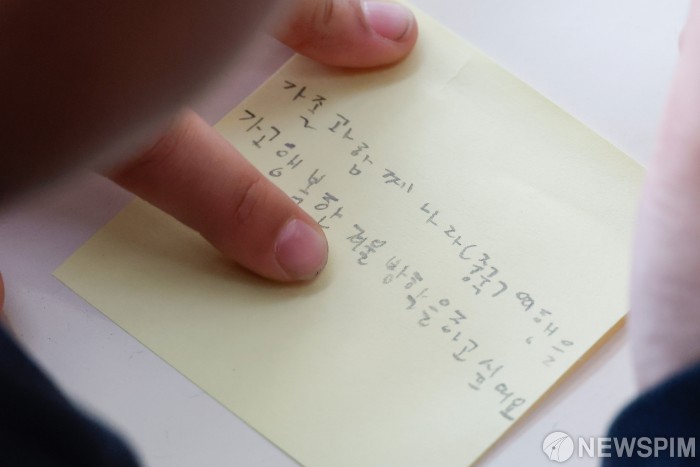 가족과 함께 나라(중국) 여행을
가고 행복한 겨울 방학을
NEWSPIM